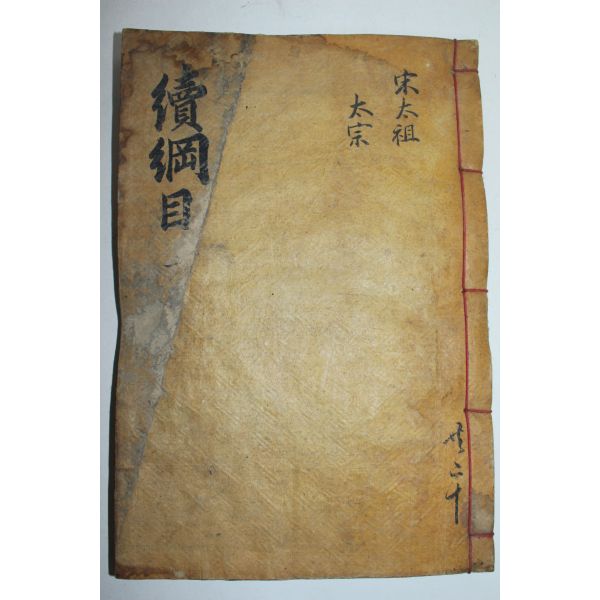 宋太祖
太宗
續綱目
一
共二十